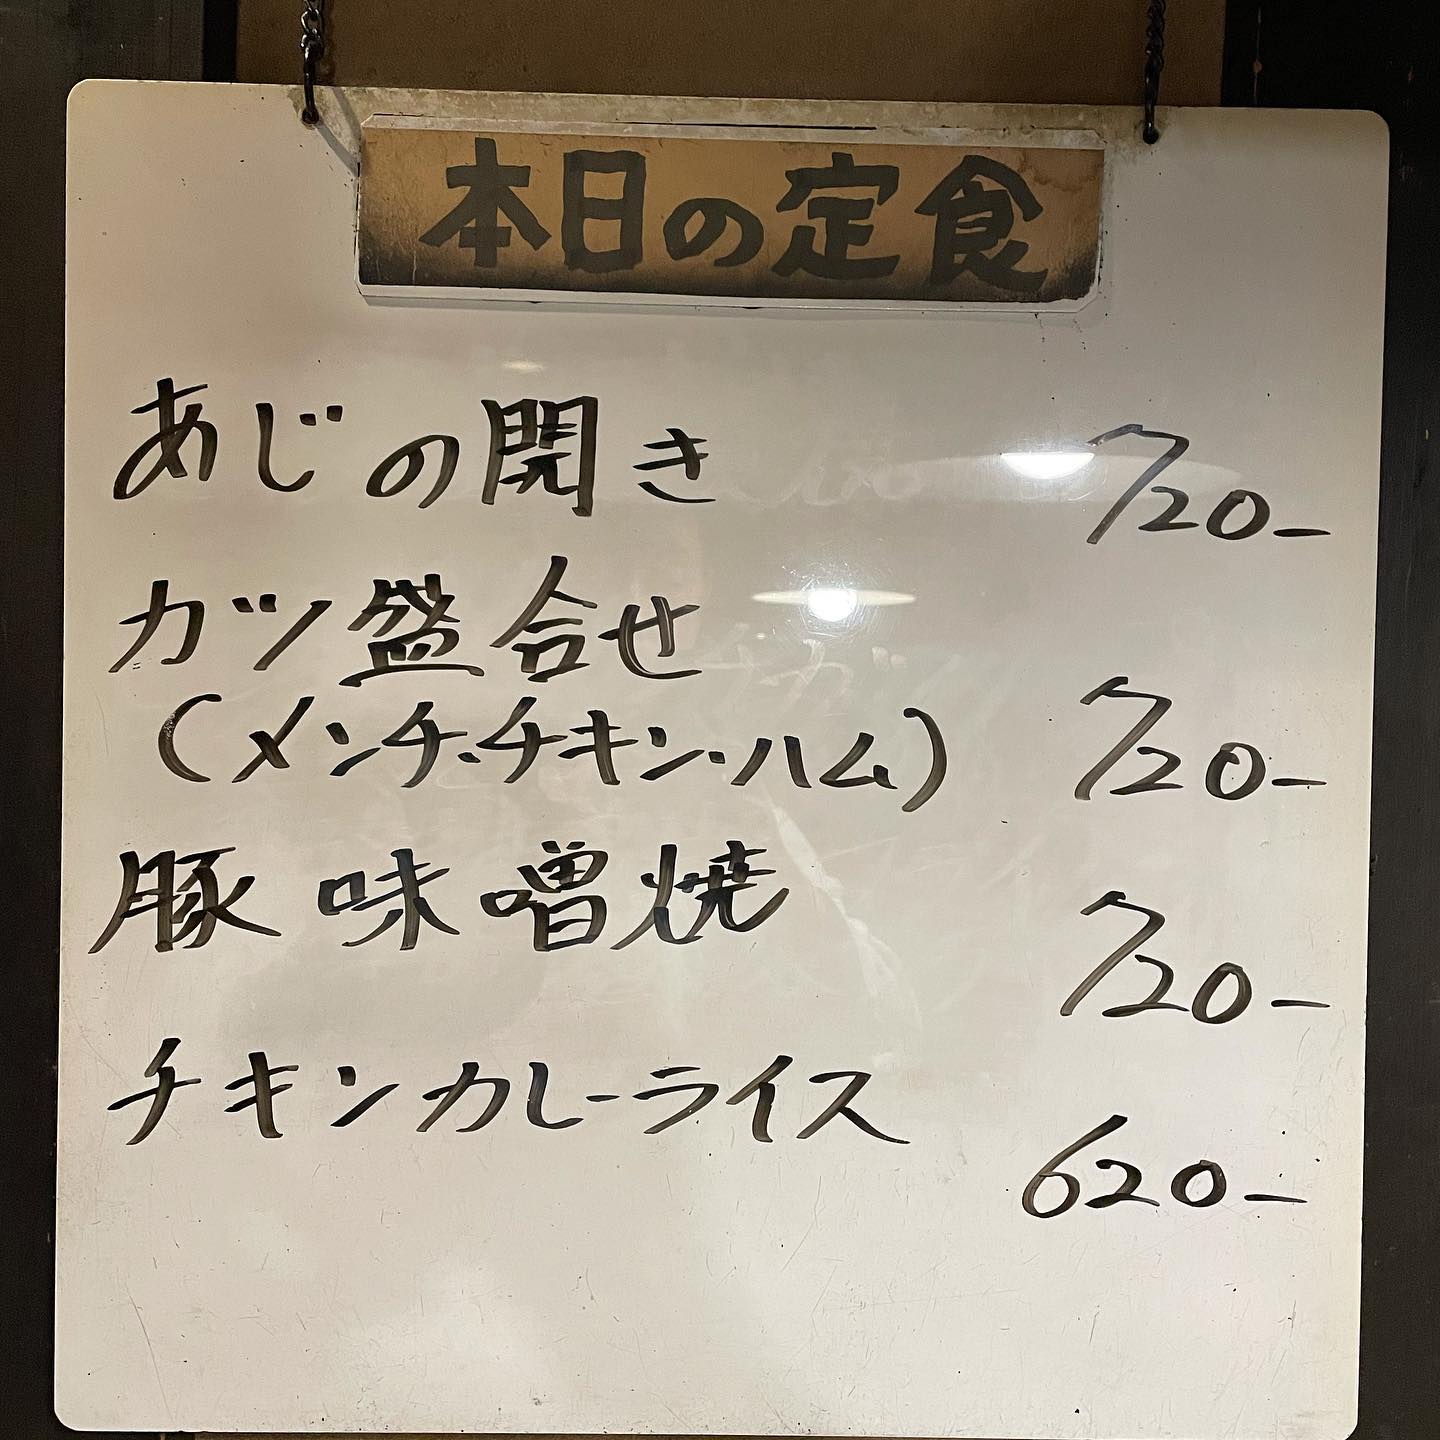 本日の定食
あじの開き 720-
カツ盛合せ
(メンチ・チキン・ハム) 720-
豚味噌焼 720-
チキンカレーライス
620-